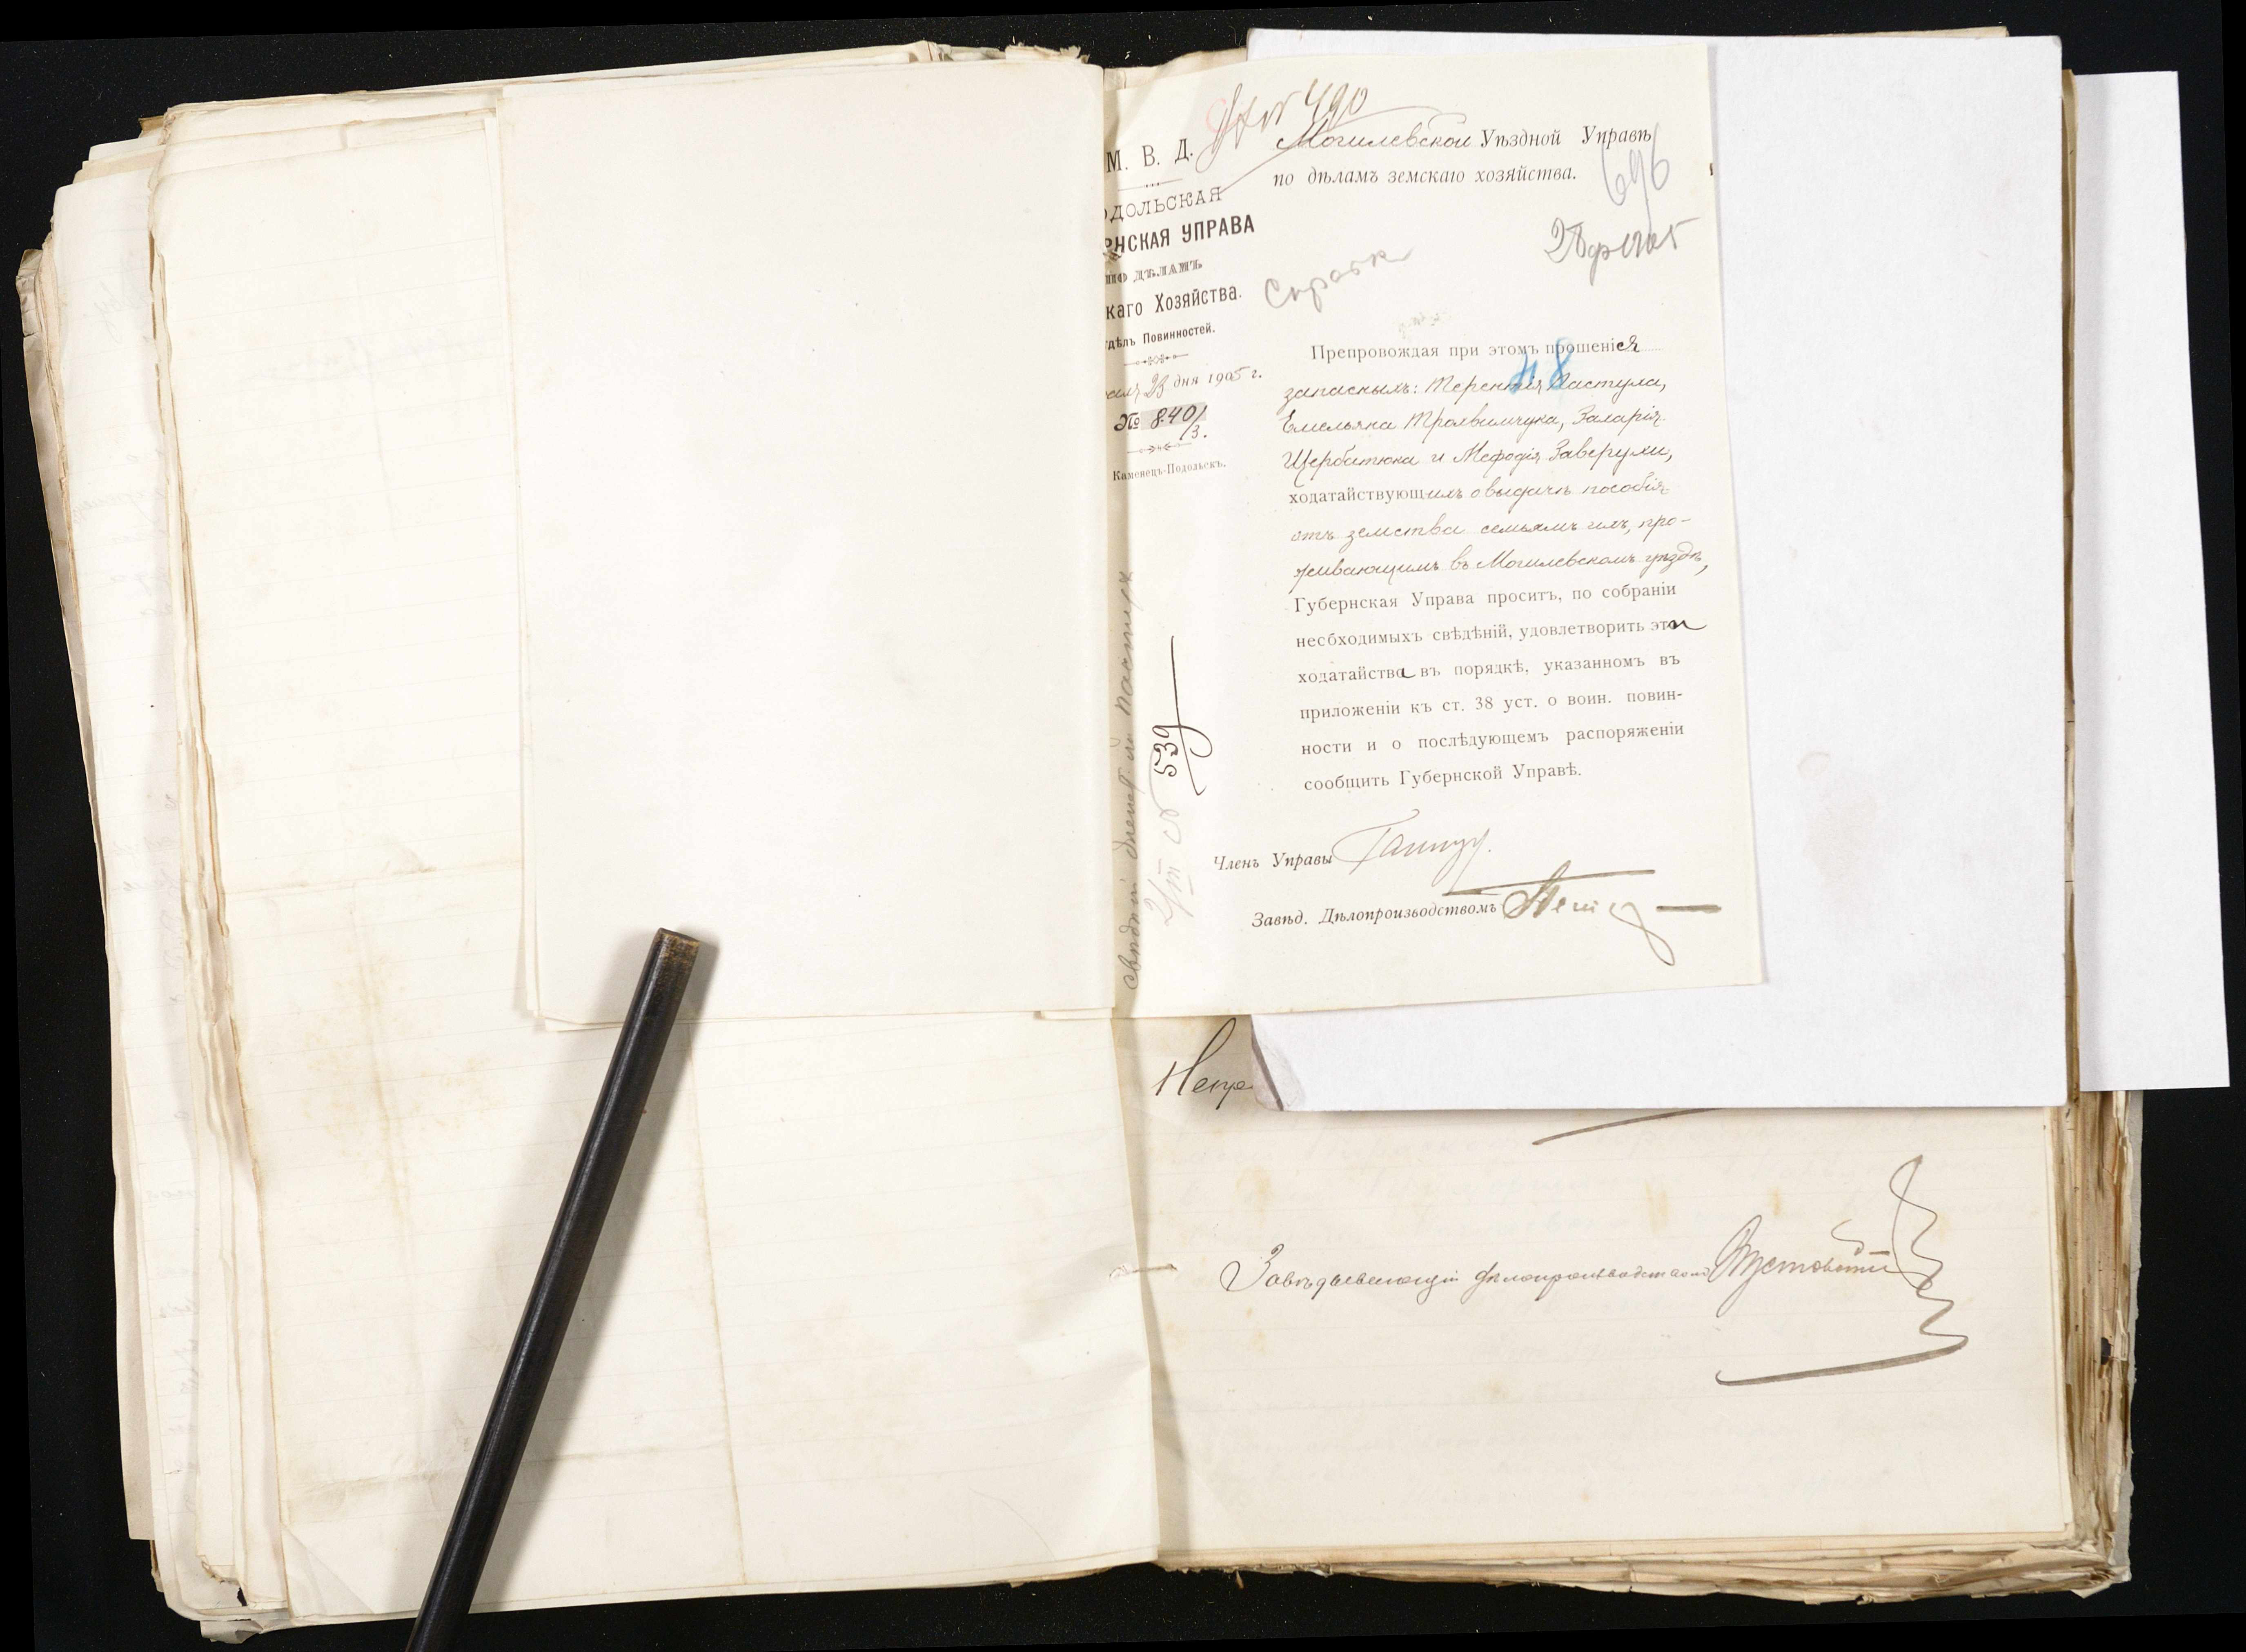 № 490
М. В. Д.
ОДОЛЬСКАЯ
РНСКАЯ УПРАВА
ПО ДѢЛАМЪ
каго Хозяйства.
дѣлъ Повинностей.
23 дня 1905 г.
№ 840/3.
Каменецъ-Подольскъ.
Могилевской Уѣздной Управѣ
по дѣламъ земскаго хозяйства.
696
Справка
48
Препровождая при этомъ прошенія
запасныхъ: Терентія Пастуха,
Емельяна Трохвимчука, Захарія
Щербатюка и Мефодія Заверухи,
ходатайствующихъ о выдачѣ пособія
отъ земства семьямъ ихъ, про-
живающимъ въ Могилевскомъ уѣздѣ,
Губернская Управа проситъ, по собраніи
несбходимыхъ свѣдѣній, удовлетворить эти
ходатайства въ порядкѣ, указанномъ въ
приложеніи къ ст. 38 уст. о воин. повин-
ности и о послѣдующемъ распоряженіи
сообщить Губернской Управѣ.
Членъ Управы
Завѣд. Дѣлопроизводствомъ
539
Непре
Завѣдывающій дѣлопроизводствомъ